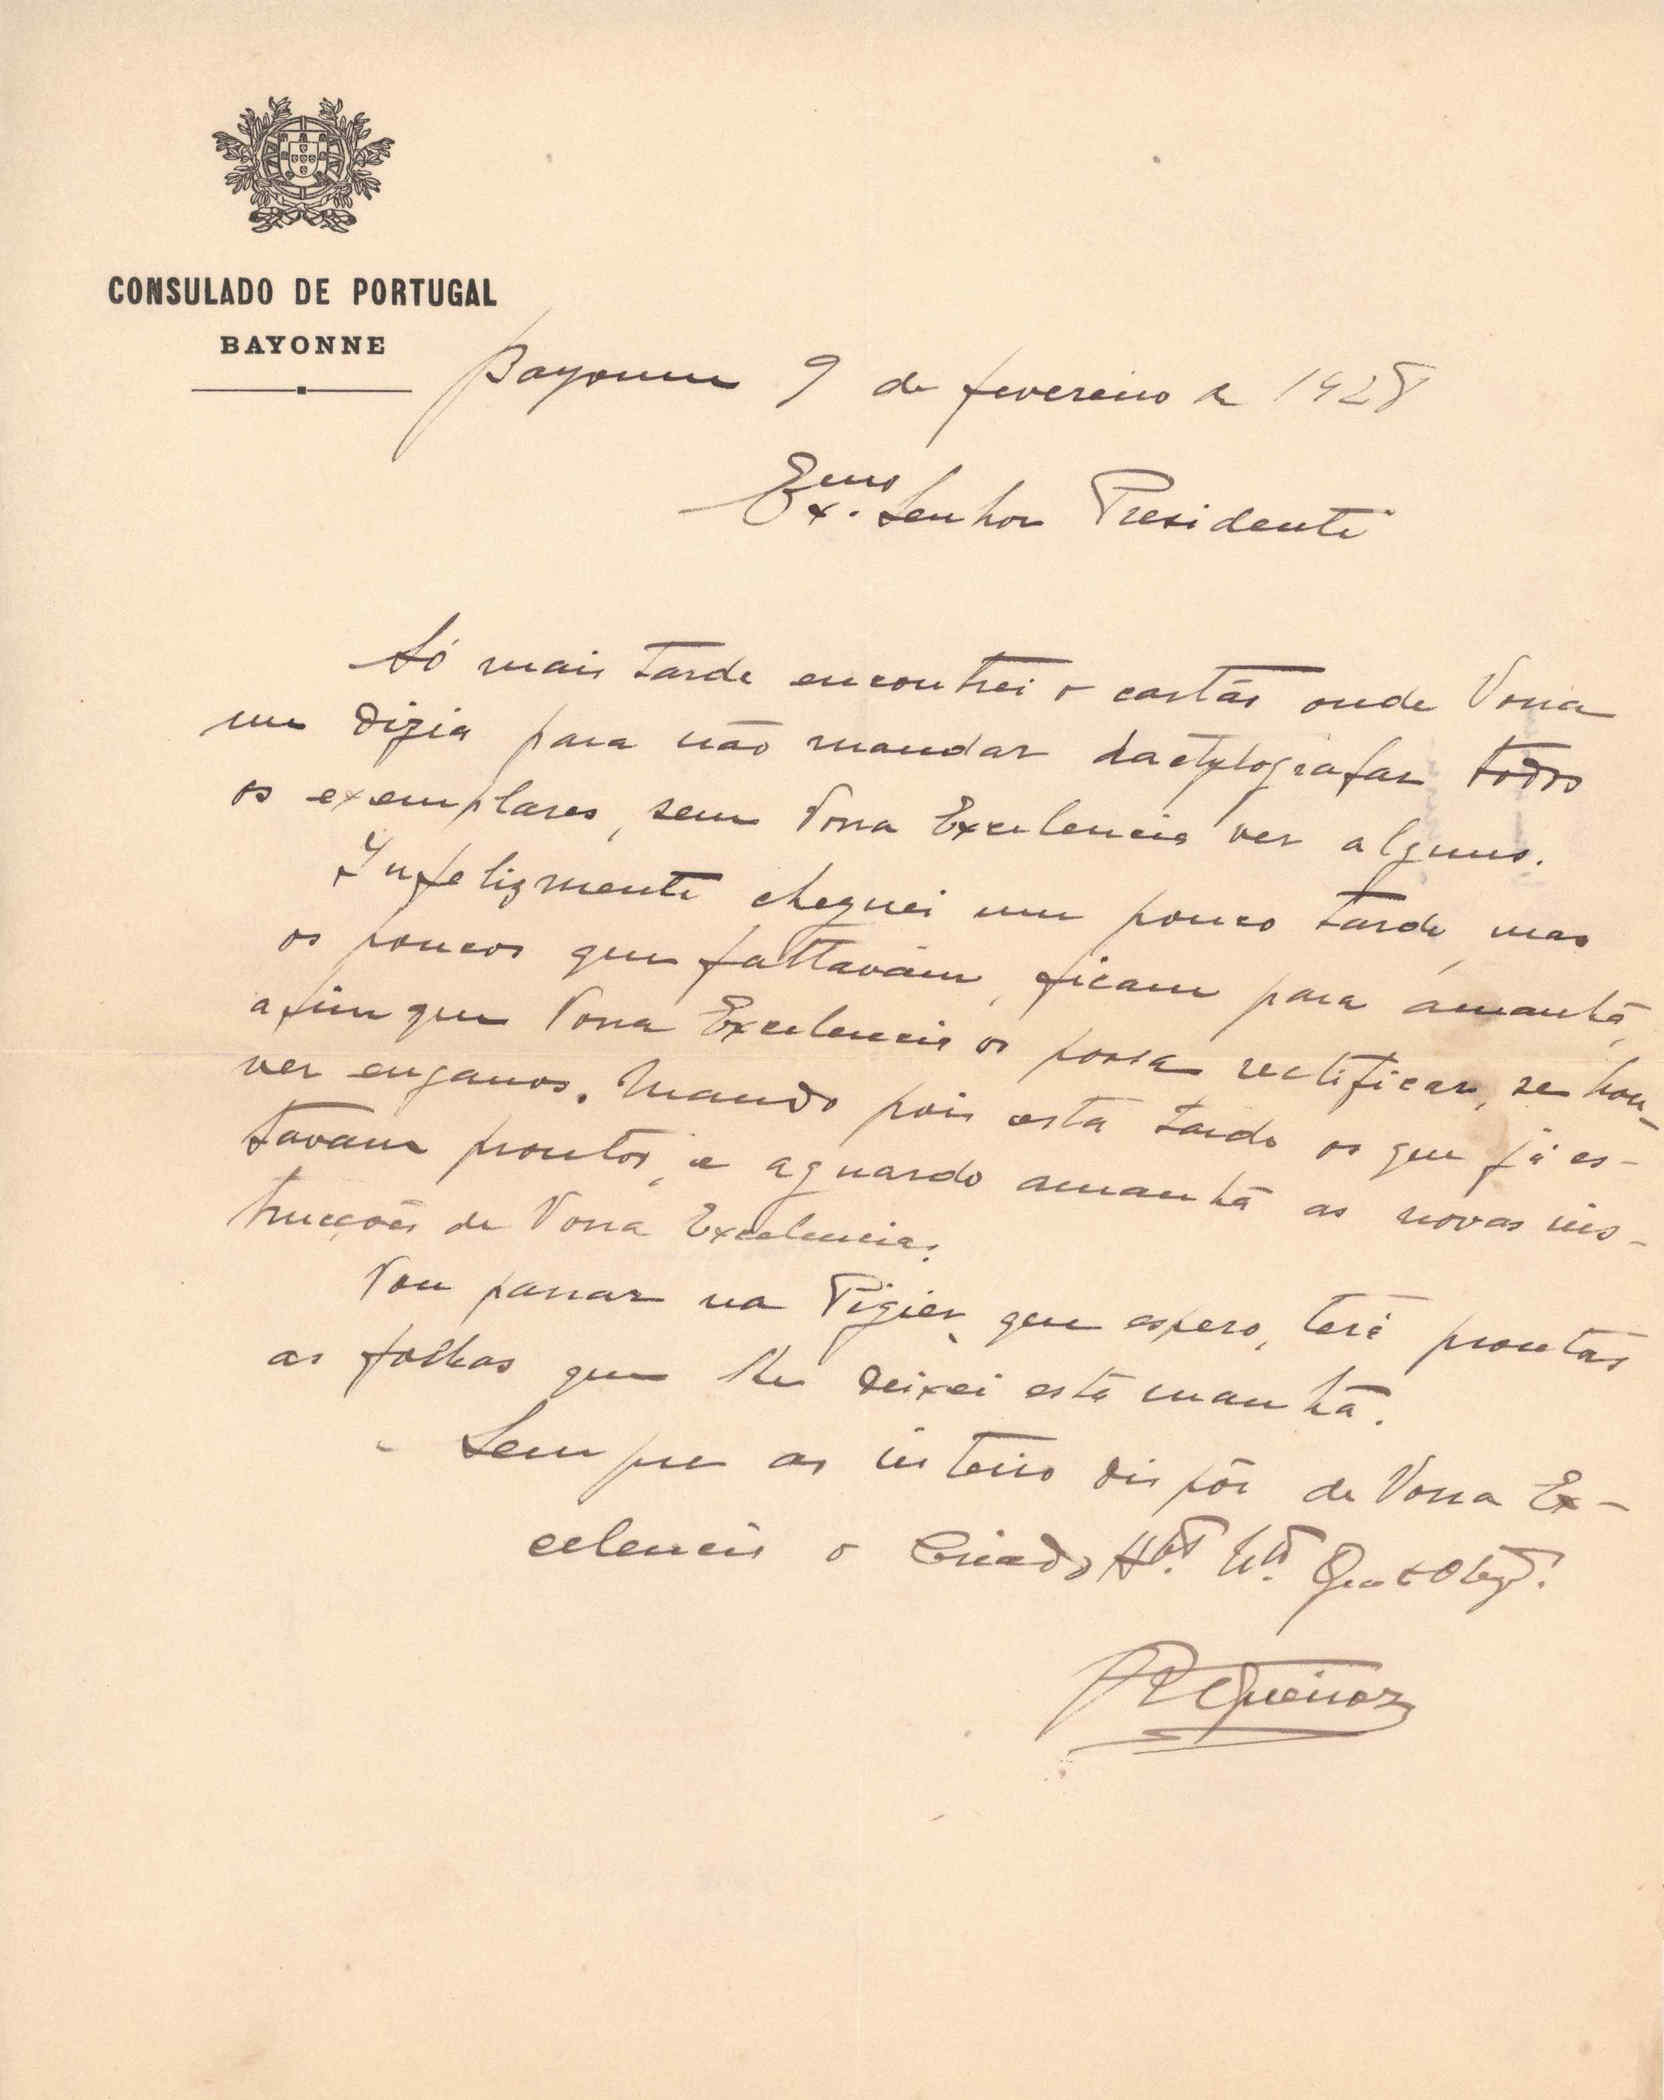 CONSULADO DE PORTUGAL
BAYONNE
Bayonne 9 de fevereiro de 1928
Exmo. Senhor Presidente
Só mais tarde encontrei o cartão onde Vossa
me dizia para não mandar dactylografar todos
os exemplares, sem Vossa Excelencia ver alguns.
Infelizmente cheguei um pouco tarde, mas
os poucos que faltavam, ficam para amanhã,
afim que Vossa Excelencia os possa rectificar, se hou-
ver enganos. Mando pois esta tarde os que já es-
tavam prontos, e aguardo amanhã as novas ins-
trucções de Vossa Excelencia.
Vou passar na Pigier, que espero, terá prontas
as folhas que lhe deixei esta manhã.
Sempre ao inteiro dispôr de Vossa Ex-
celencia o Criado
Queiroz